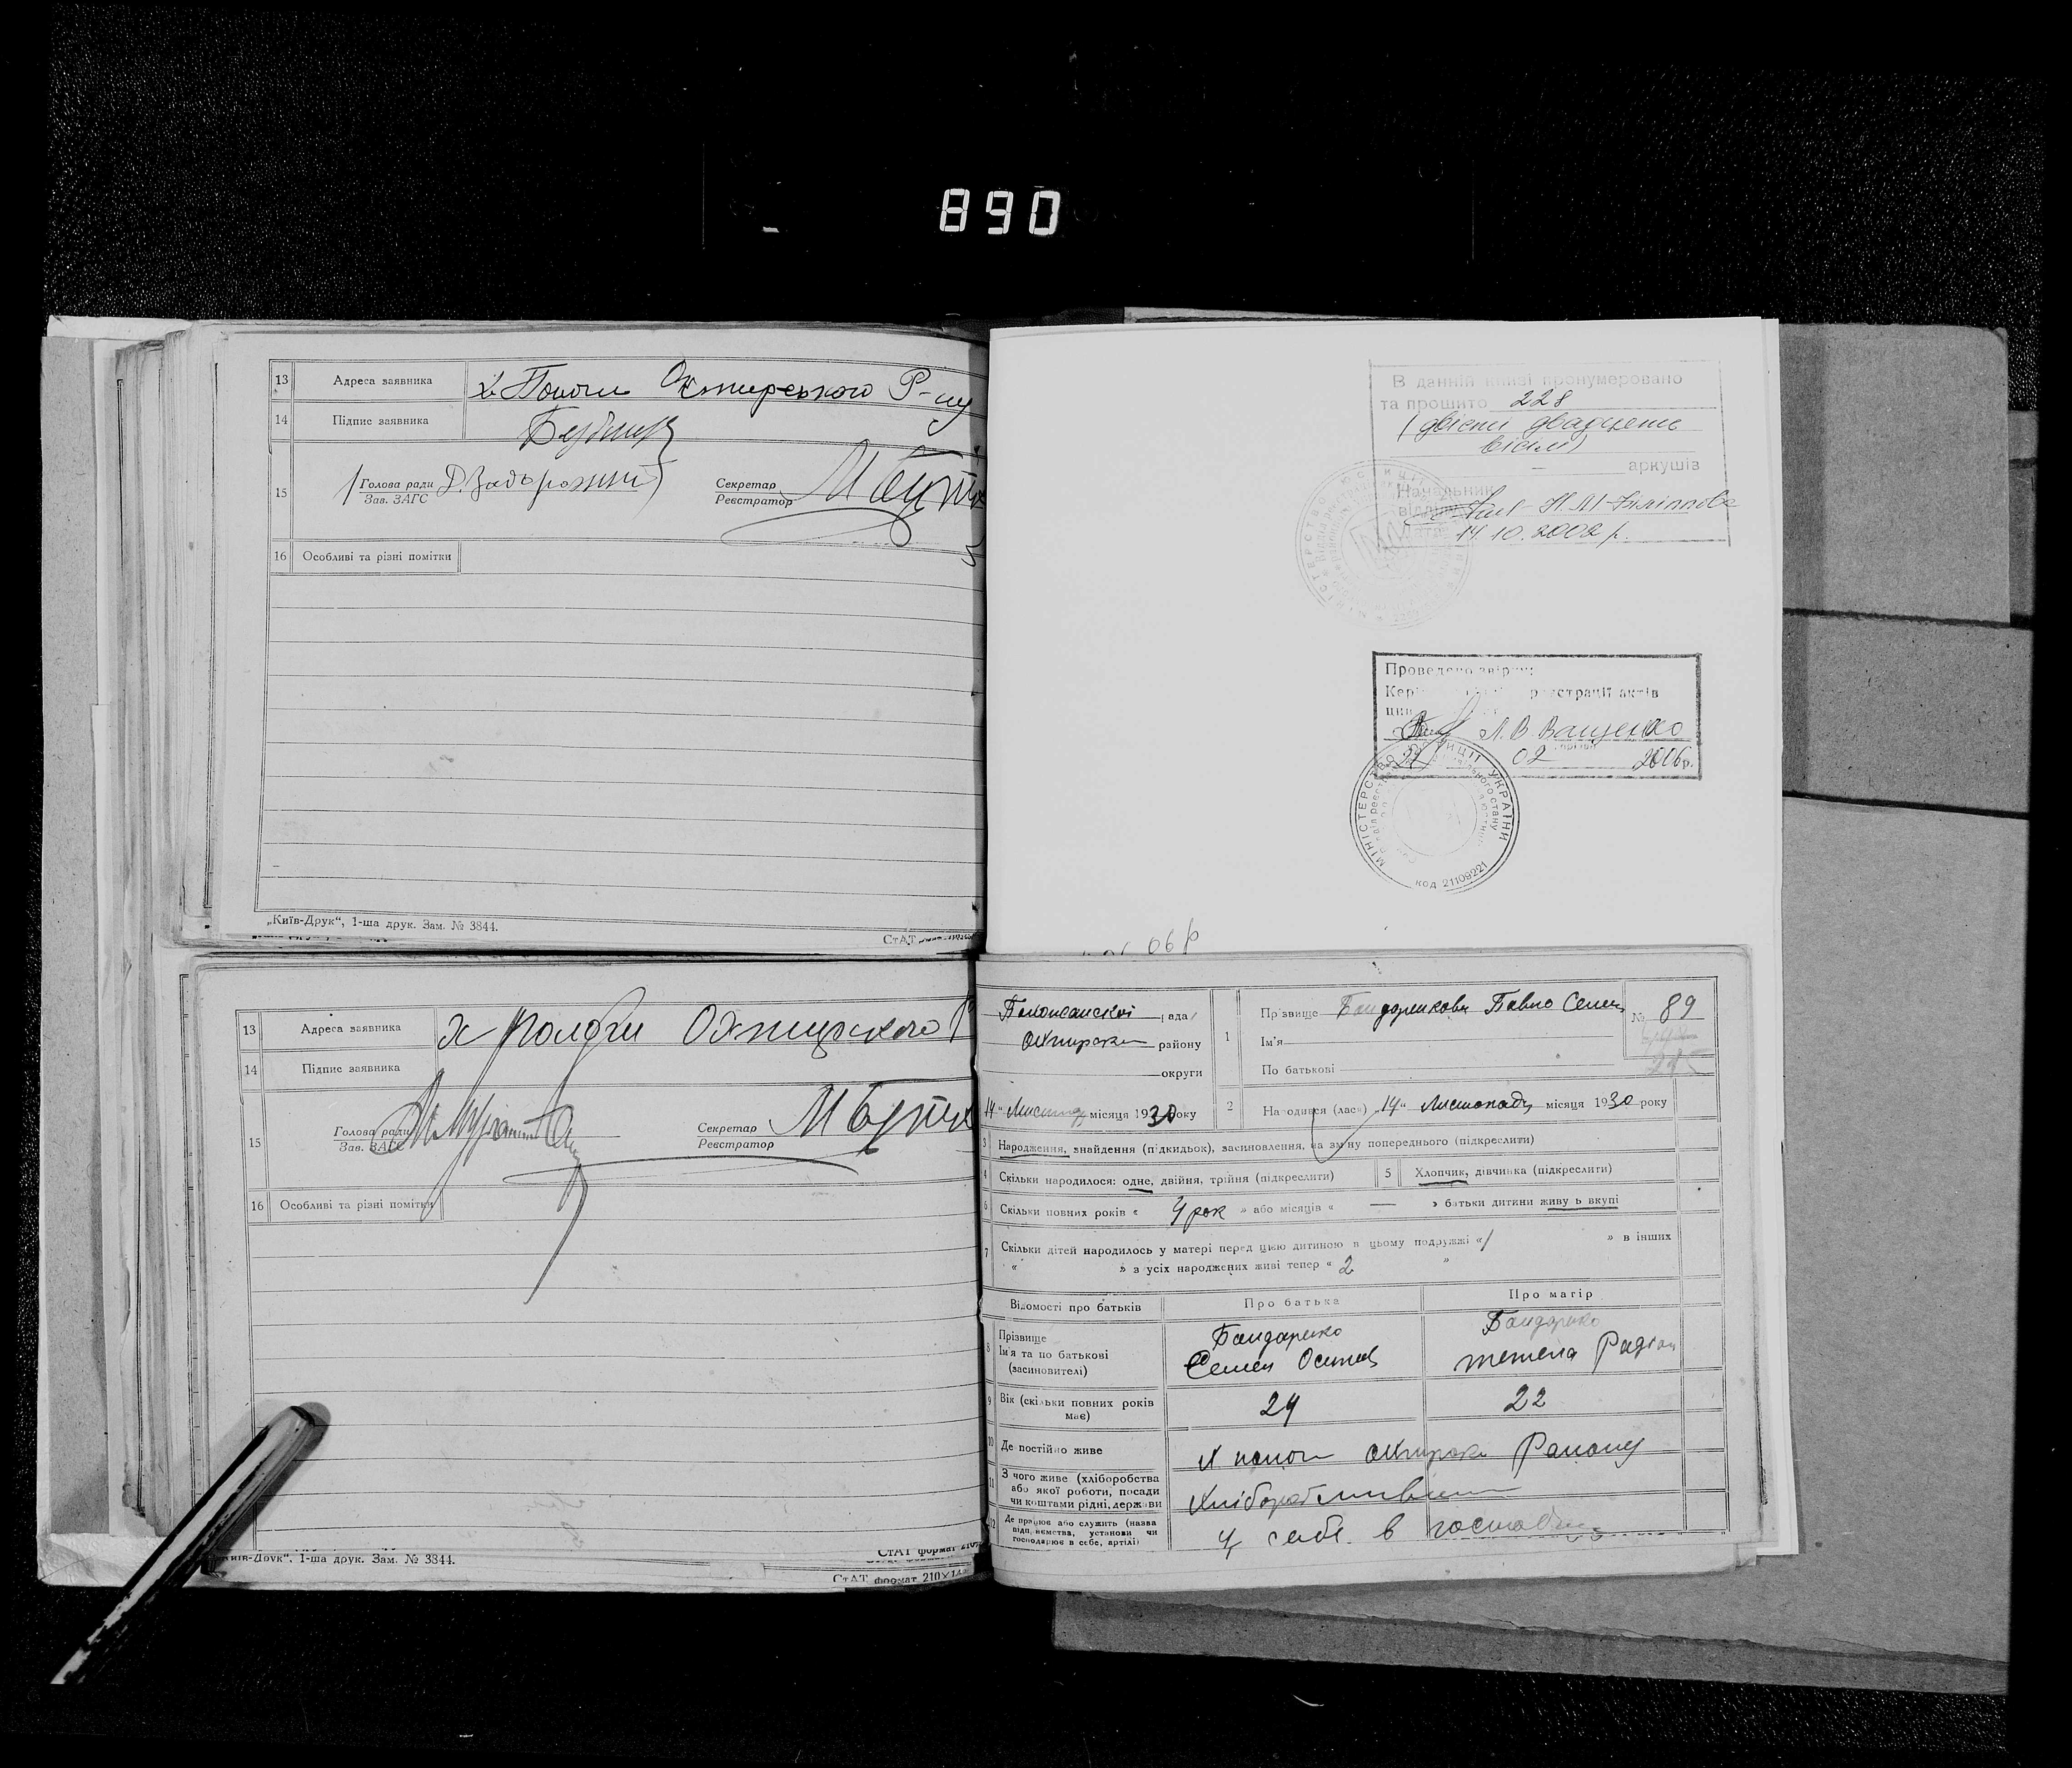 890
13 Адреса заявника х. Пологи Охтирського Р-ну
14 Підпис заявника
15 Голова ради Д. Задорожний Секретар
Зав. ЗАГС Реєстратор
16 Особливі та різні помітки
„Київ-Друк“, 1-ша друк. Зам. № 3844.
СтАТ
В данній книзі пронумеровано
та прошито 228
(двісти двадцять
вісім)
аркушів
Начальник
відділу Н. М. Філіппова
Дата 14 10. 2002 р.
Проведено звірку
реєстрації актів
Л. В. Ващенко
27 02 2006 р.
МІНІСТЕРСТВО ЮСТИЦІЇ УКРАЇНИ
код 21109221
06 р
13 Адреса заявника х Пологи Охтирского
14 Підпис заявника
15 Голова ради Секретар
Зав. ЗАГС Реєстратор
16 Особливі та різні помітки
„Київ-Друк“, 1-ша друк. Зам. № 3844.
СтАТ формат 210
СтАТ формат 210×14
ради
району
округи
1 Прізвище Бандаренкова Павло Семен
Ім'я
По батькові
№ 89
14 „ Листопад місяця 1930 року
2 Народився (лася) „14 “ Листопаду місяця 1930 року
3 Народження, знайдення (підкидьок), засиновлення, на зміну попереднього (підкреслити)
4 Скільки народилося: одне, двійня, трійня (підкреслити) 5 Хлопчик, дівчинка (підкреслити)
6 Скільки повних років « 4 рок » або місяців « — » батьки дитини живуть вкупі
7 Скільки дітей народилось у матері перед цією дитиною в цьому подружжі « 1 » в інших
« » з усіх народжених живі тепер « 2 »
Відомості про батьків Про батька Про матір
8 Прізвище Бандаренко Бандаренко
Ім'я та по батькові Семен Осипов тетяна Радіон
(засиновителі)
9 Вік (скільки повних років має) 24 22
10 Де постійно живе
11 З чого живе (хліборобства
або якої роботи, посади
чи коштами рідні, держави
12 Де працює або служить (назва
підприємства, установи чи
господарює в себе, артілі) у себе в господ